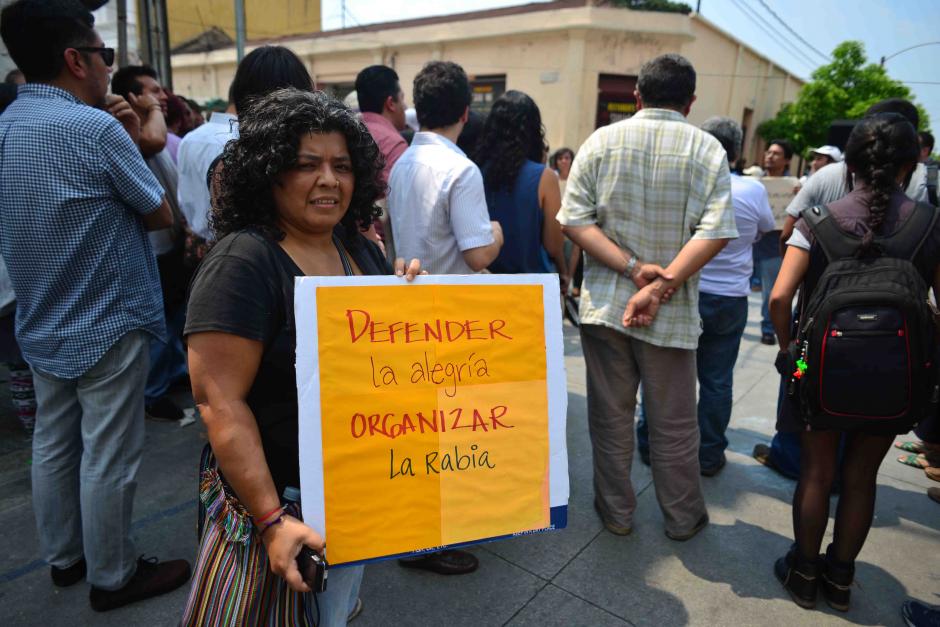 DEFENDER
la alegría
ORGANIZAR
La Rabia